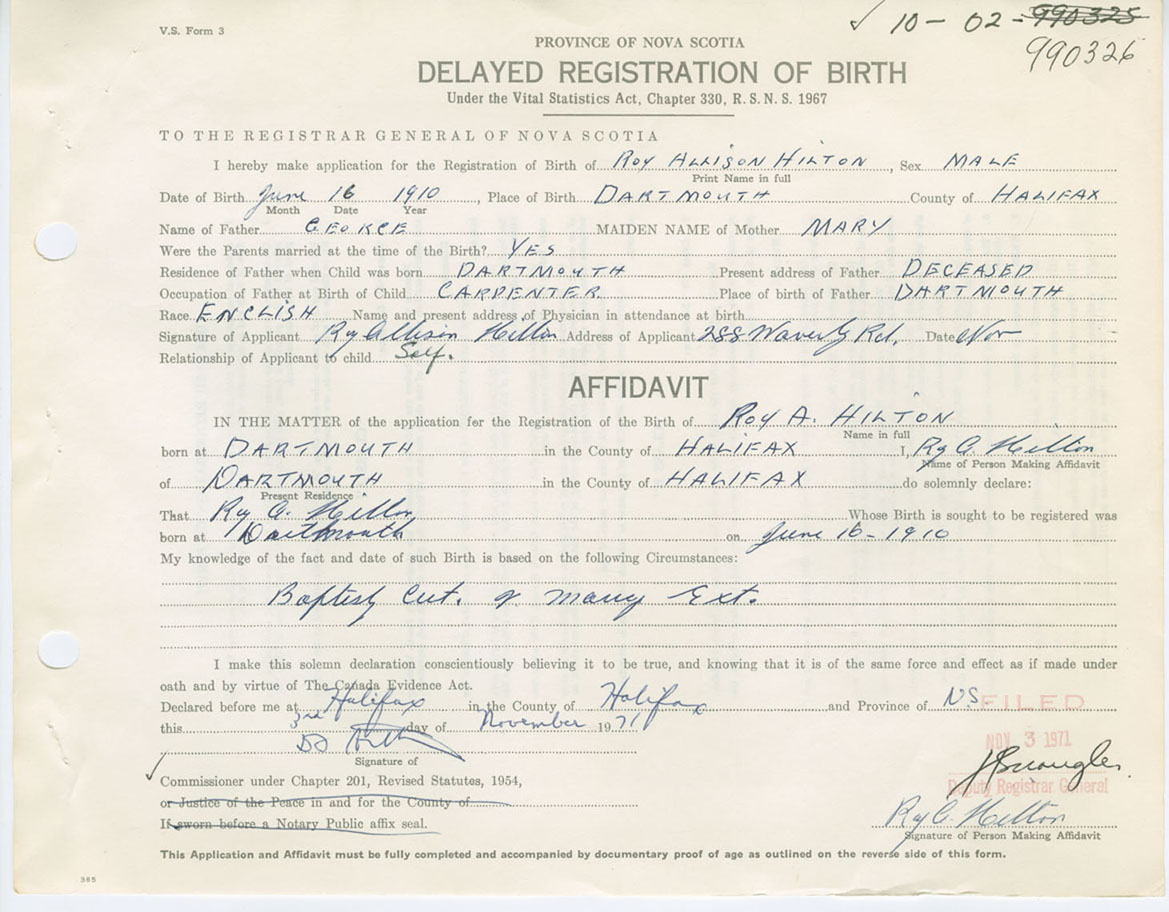 V.S. Form 3
✓ 10 - 02 - 990325
990326
PROVINCE OF NOVA SCOTIA
DELAYED REGISTRATION OF BIRTH
Under the Vital Statistics Act, Chapter 330, R. S. N. S. 1967
TO THE REGISTRAR GENERAL OF NOVA SCOTIA
I hereby make application for the Registration of Birth of ROY ALLISON HILTON, Sex MALE
Print Name in full
Date of Birth June 16 1910, Place of Birth DARTMOUTH County of HALIFAX
Month Date Year
Name of Father GEORGE MAIDEN NAME of Mother MARY
Were the Parents married at the time of the Birth? YES
Residence of Father when Child was born DARTMOUTH Present address of Father DECEASED
Occupation of Father at Birth of Child CARPENTER Place of birth of Father DARTMOUTH
Race ENGLISH Name and present address of Physician in attendance at birth
Signature of Applicant Roy Allison Hilton Address of Applicant 288 Waverly Rd. Date Nov
Relationship of Applicant to child Self.
AFFIDAVIT
IN THE MATTER of the application for the Registration of the Birth of ROY A. HILTON
Name in full
born at DARTMOUTH in the County of HALIFAX I, Roy A. Hilton
Name of Person Making Affidavit
of DARTMOUTH in the County of HALIFAX do solemnly declare:
Present Residence
That Roy A. Hilton Whose Birth is sought to be registered was
born at Dartmouth on June 16 - 1910
My knowledge of the fact and date of such Birth is based on the following Circumstances:
Baptist Cert. Ext.
I make this solemn declaration conscientiously believing it to be true, and knowing that it is of the same force and effect as if made under
oath and by virtue of The Canada Evidence Act.
Declared before me at Halifax in the County of Halifax and Province of N.S.
FILED
this 3rd day of November 1971
NOV 3 1971
Signature of
Commissioner under Chapter 201, Revised Statutes, 1954,
Deputy Registrar General
or Justice of the Peace in and for the County of
Roy A. Hilton
If sworn before a Notary Public affix seal.
Signature of Person Making Affidavit
This Application and Affidavit must be fully completed and accompanied by documentary proof of age as outlined on the reverse side of this form.
385